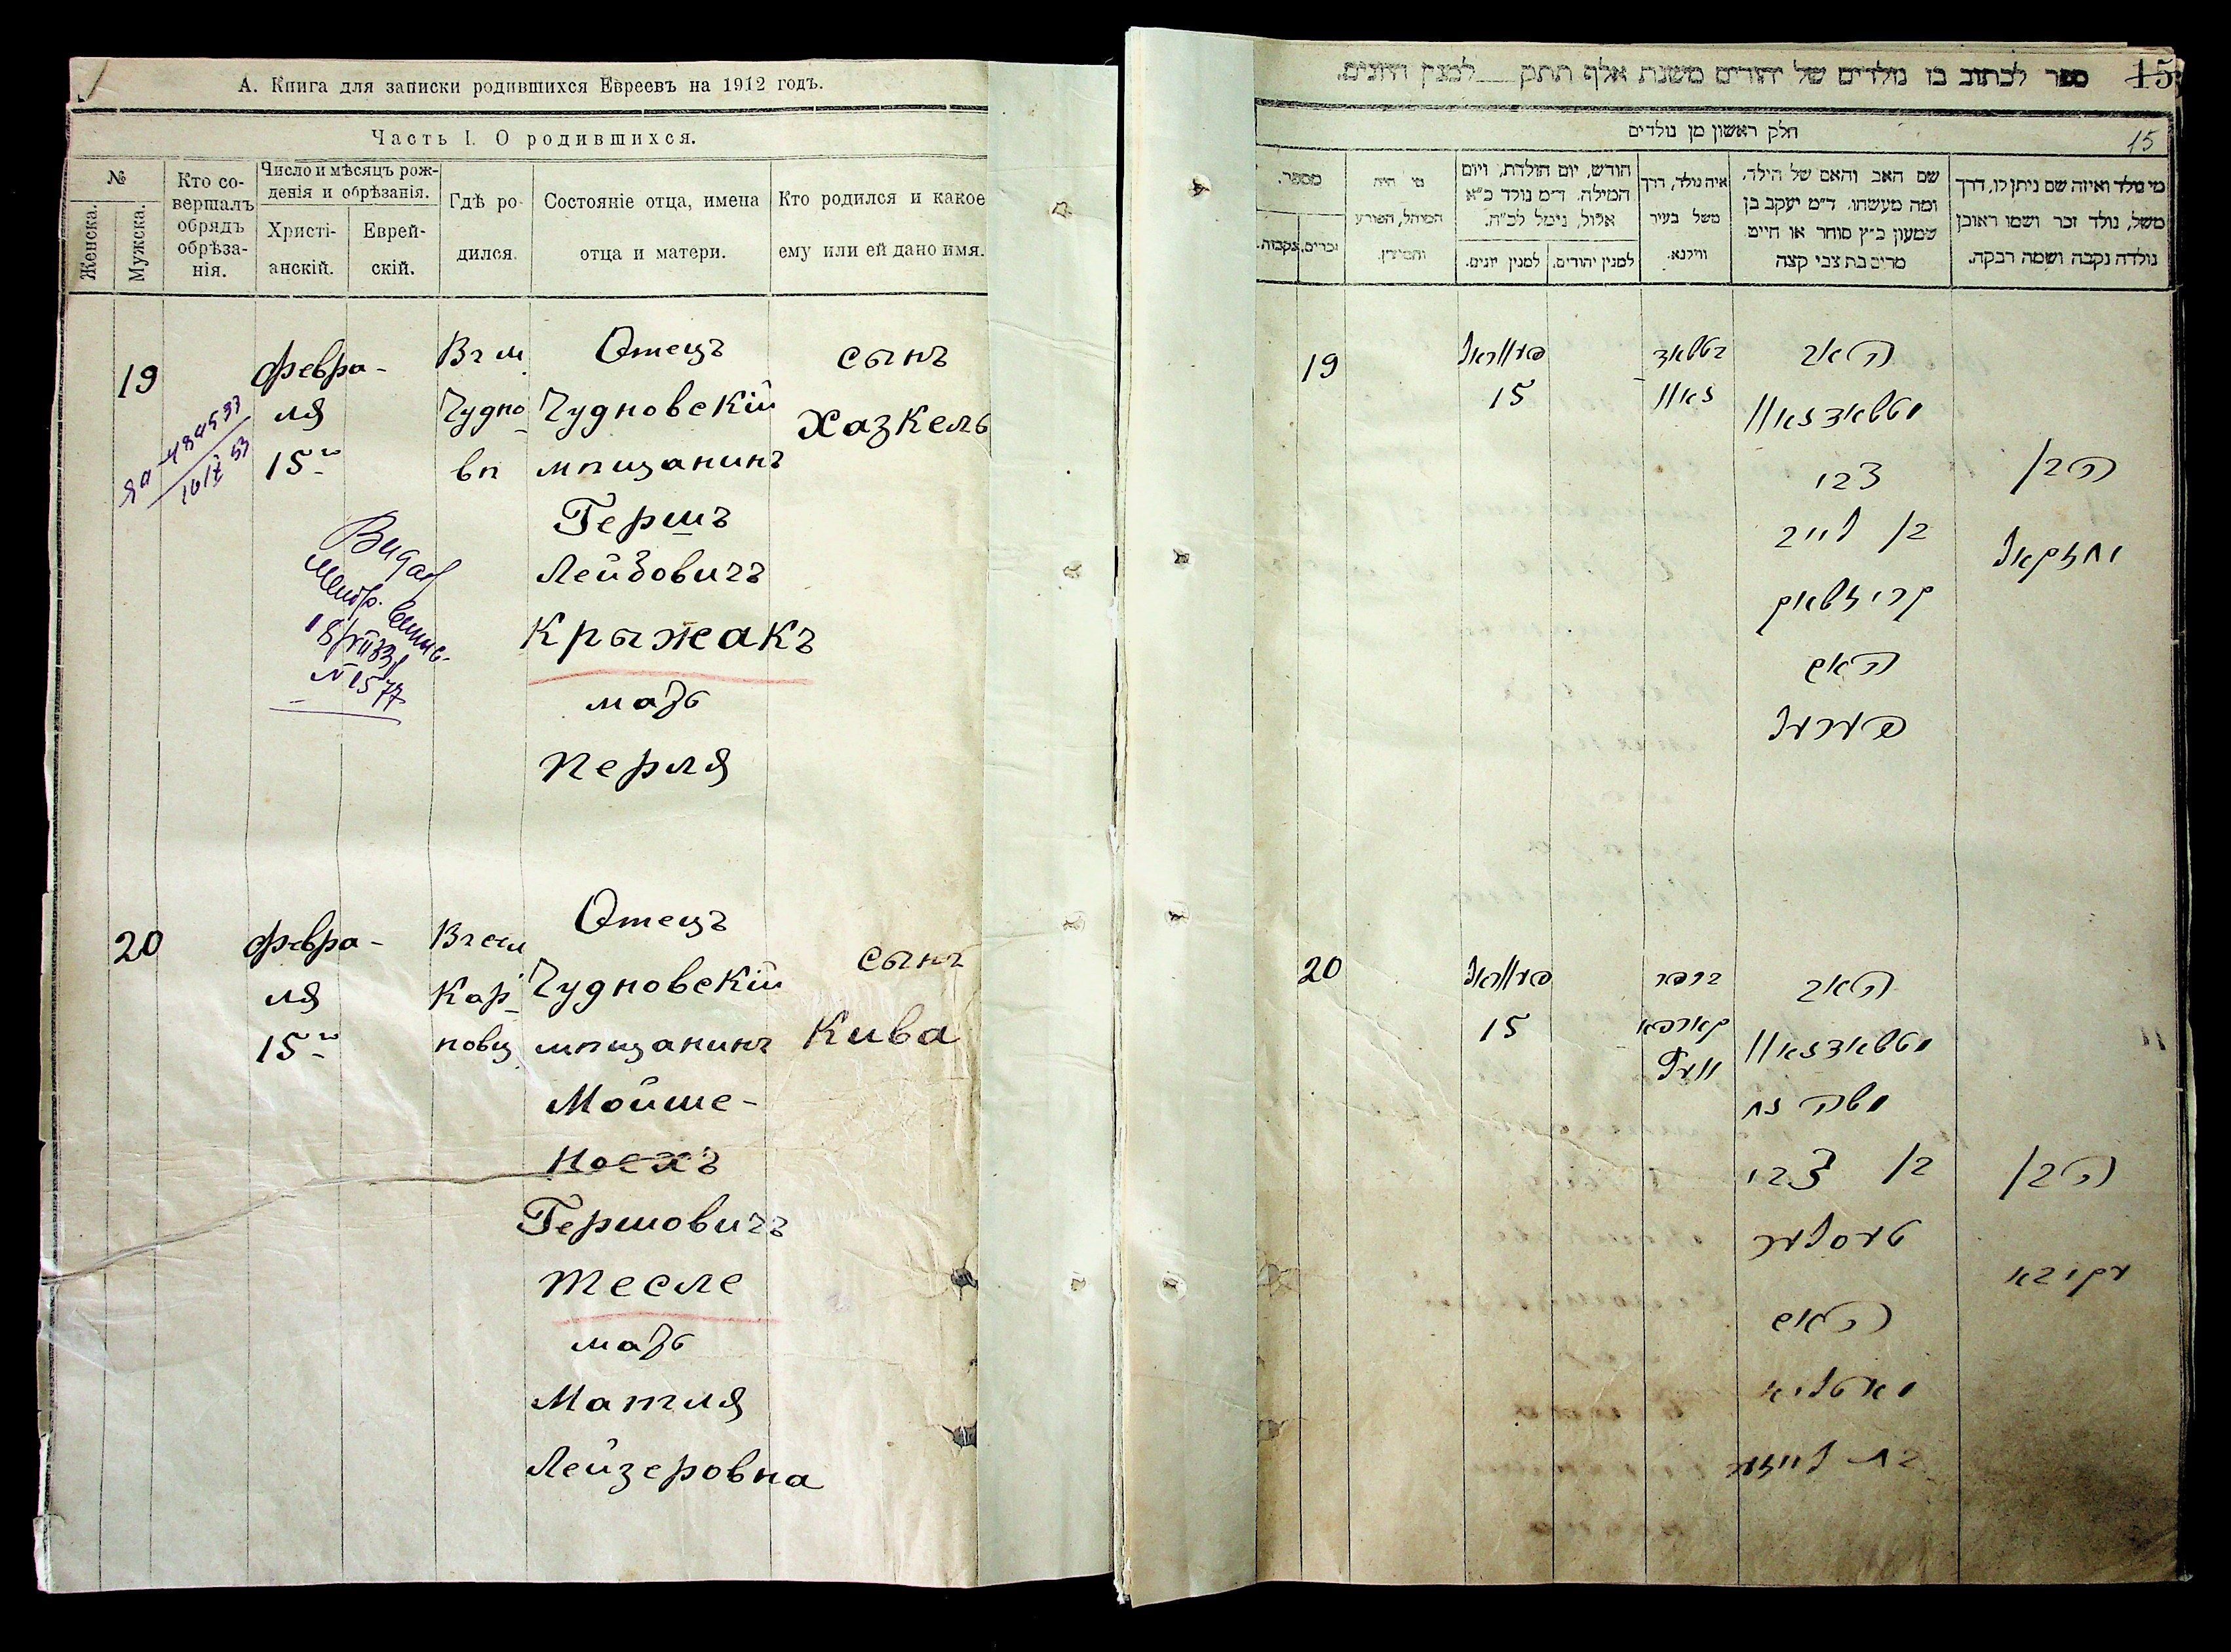 А. Книга для записки родившихся Евреевъ на 1912 годъ.
Часть I. О родившихся.
№
Женска.
Мужска.
Кто совершалъ обрядъ обрѣзанія.
Число и мѣсяцъ рожденія и обрѣзанія.
Христіанскій.
Еврейскій.
Гдѣ родился.
Состояніе отца, имена отца и матери.
Кто родился и какое ему или ей дано имя.
19
Февра-
ля
15го
Въ м.
Чудно-
вѣ
Отецъ
Чудновскій
мѣщанинъ
Гершъ
Лейбовичъ
Крыжакъ
мать
Перля
сынъ
Хазкель
№ 1577
20
Февра-
ля
15го
Въ сел
Кар-
повц
Отецъ
Чудновскій
мѣщанинъ
Мойше-
Ноехъ
Гершовичъ
Тесле
мать
Матля
Лейзеровна
сынъ
Кива
ספר לכתוב בו נולדים של יהודים משנת אלף תתק למנין היונים.
15
חלק ראשון מן נולדים
15
מי נולד ואיזה שם ניתן לו, דרך
משל, נולד זכר ושמו ראובן
נולדה נקבה ושמה רבקה.
שם האב והאם של הילד,
ומה מעשהו. ד״מ יעקב בן
שמעון כ״ץ סוחר או חייט
מרים בת צבי קצה
איה נולד, דרך
משל בעיר
ווילנא.
חודש, יום הולדת, ויום
המילה. ד״מ נולד כ״א
אלול, נימל לכ״ח.
למנין יהודים.
למנין יונים.
מי היה
המוהל, הפורע
מספר.
זכרים.
נקבות.
19
פעווראל
15
האב
צבי
בן לייב
קריזשאק
האם
פערל
הבן
יחזקאל
20
פעווראל
15
בכפר
קארפא
וועץ
האב
משה נח
בן צבי
טעסלער
האם
מאטליא
בת לייזער
הבן
עקיבא